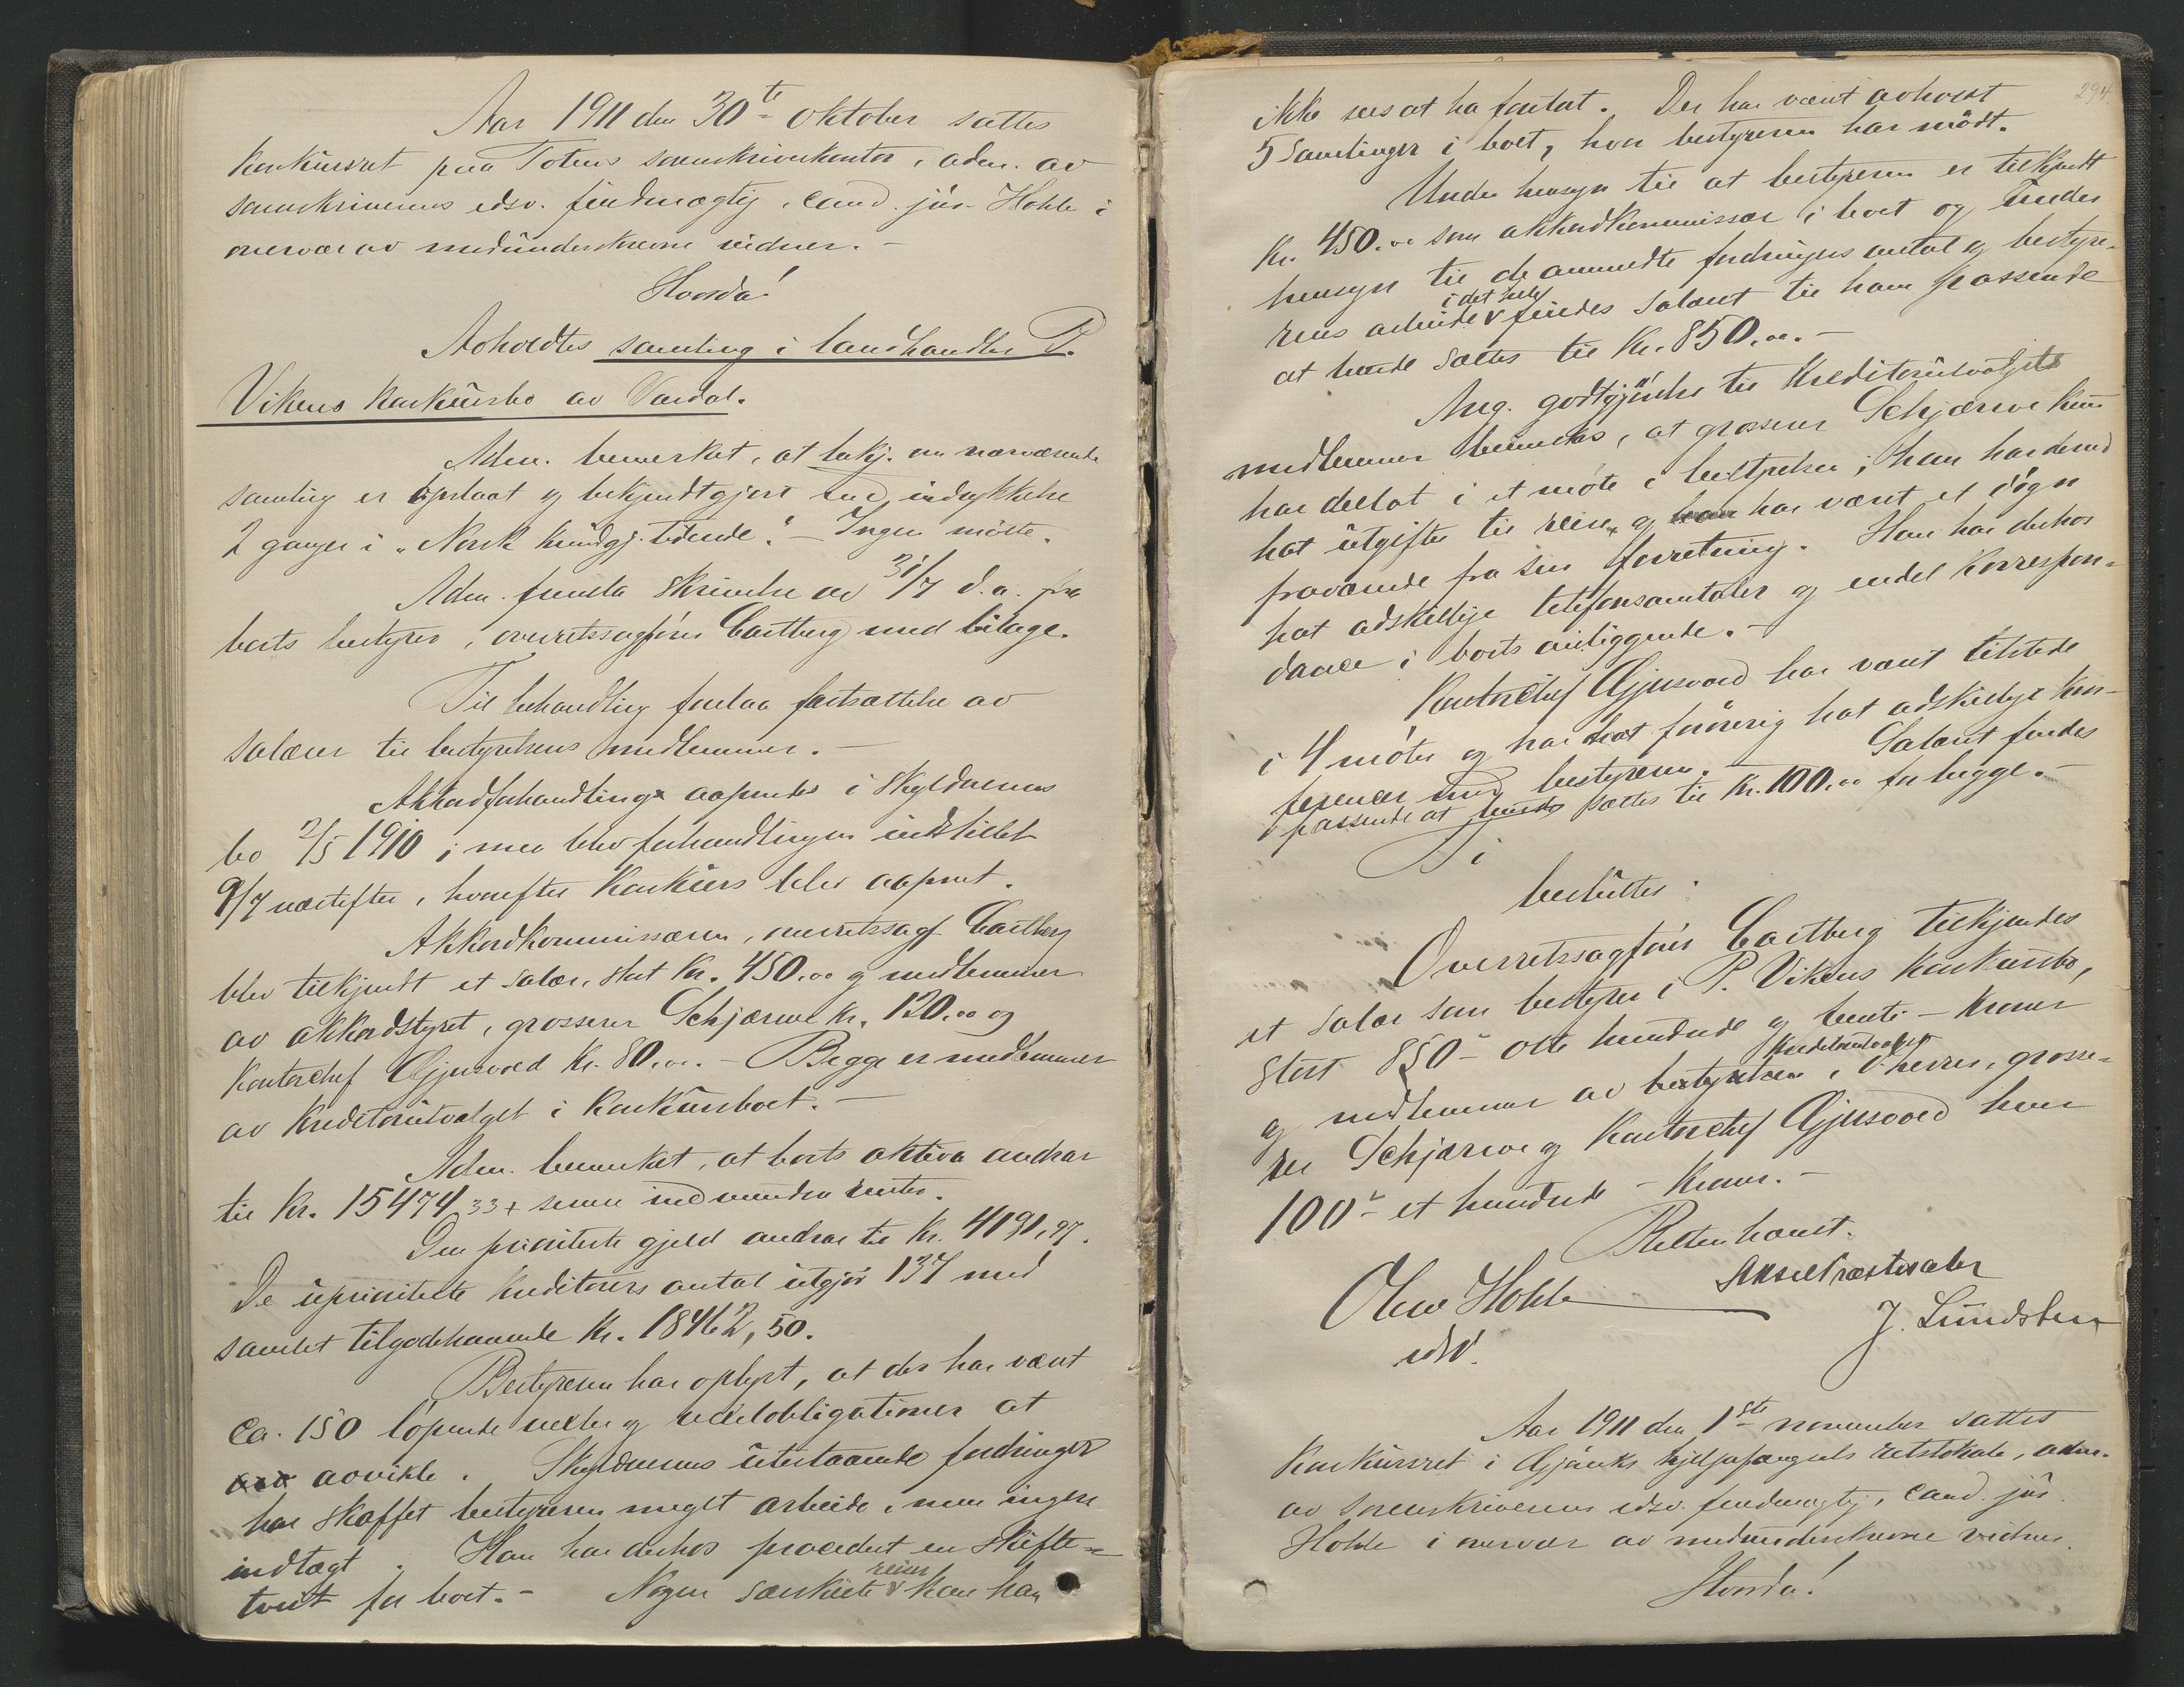 Aar 1911 den 30te oktober sattes
konkursret paa Totens sorenskriverkontor, adm. av
sorenskriverens edsv. fuldmægtig, cand. jur. Hohle i
overvær av medunderskrevne vidner. –
Hvorda!
Avholdtes samling i landhandler P.
Vikens konkursbo av Vardal.
Adm. bemerket, at bekj. om nærværende
samling er opslaat og bekjendtgjort ved indrykkelse
2 ganger i "Norsk Kundgj. tidende". – Ingen møtte.
Adm. fremla skrivelse av 31/7 d.a. fra
boets bestyrer, overretssagfører Castberg med bilage.
Til behandling forelaa fastsættelse av
salærer til bestyrelsens medlemmer. –
Akkordforhandling aapnedes i skyldnerens
bo 2/5 1910; men blev forhandlingen indstillet
9/7 næstefter, hvorefter konkurs blev aapnet.
Akkordkommissæren, overretssagf. Castberg
blev tilkjendt et salær, stort Kr. 450.00 og medlemmer
av akkordstyret, grosserer Schjærve Kr. 120.00 og
kontorchef Gjensvold Kr. 80.00. – Begge er medlemmer
av kreditorutvalget i konkursboet. –
Adm. bemerket, at boets aktiva andrar
til Kr. 15474,33 + senere indvundne renter.
Den prioriterte gjeld andrar til Kr. 4191,97.
De uprioriterte kreditorers antal utgjør 137 med
samlet tilgodehavende Kr. 18462,50.
Bestyreren har oplyst, at der har været
ca. 150 løpende veksler og vekselobligationer at
avvikle. Skyldnerens utestaaende fordringer
har skaffet bestyreren meget arbeide, men ingen
indtægt. Han har derhos procedert en skifte-
tvist for boet. – Nogen særskilte reiser kan han
294.
ikke sees at ha foretat. Der har været avholdt
5 samlinger i boet, hvor bestyreren har mødt.
Under hensyn til at bestyreren er tilkjendt
Kr. 450.00 som akkordkommissær i boet og under
hensyn til de anmeldte fordringers antal og bestyre-
rens arbeide i det hele findes salæret til ham passende
at burde sættes til Kr. 850.00. –
Ang. godtgjørelse til kreditorutvalgets
medlemmer bemerkes, at grosserer Schjærve kun
har deltat i et møte i bestyrelsen; han har derved
hat utgifter til reise, og har været et døgn
fraværende fra sin forretning. Han har derhos
hat adskillige telefonsamtaler og endel korrespon-
dance i boets anliggende. –
Kontorchef Gjensvold har været tilstede
i 4 møter og har forøvrig hat adskillige kon-
ferencer med bestyreren. Salæret findes
passende at burde sættes til Kr. 100.00 for begge. –
Ti
besluttes:
Overretssagfører Castberg tilkjendes
et salær som bestyrer i P. Vikens konkursbo,
stort 850 – otte hundrede og femti – kroner
og medlemmer av kreditorutvalget, d'herrer, grosse-
rer Schjærve og kontorchef Gjensvold hver
100 – et hundrede – kroner. –
Retten hævet.
Olav Hohle
edsv.
Aksel Præstesæter
J. Lundsten
Aar 1911 den 1ste november sattes
konkursret i Gjøviks hjelpefængsels retslokale, adm.
av sorenskriverens edsv. fuldmægtig, cand. jur.
Hohle i overvær av medunderskrevne vidner.
Hvorda!